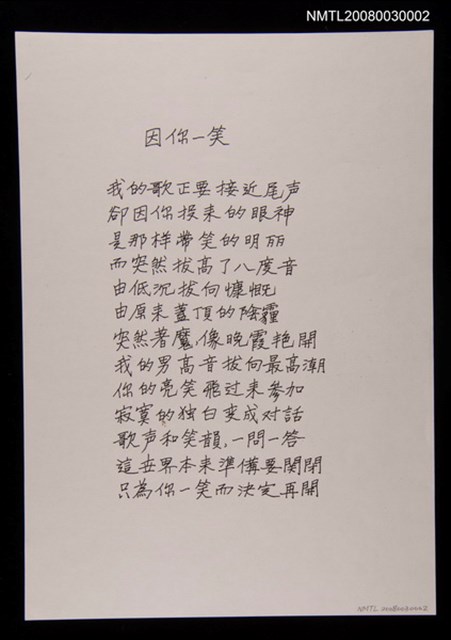 NMTL20080030002
因你一笑
我的歌正要接近尾声
卻因你投来的眼神
是那样帶笑的明丽
而突然拔高了八度音
由低沉拔向慷慨
由原来蓋頂的陰霾
突然著魔,像晚霞艳開
我的男高音拔向最高潮
你的亮笑飛过来參加
寂寞的独白变成对話
歌声和笑韻,一問一答
這世界本来準備要関閉
只為你一笑而決定再開
NMTL 20080030002